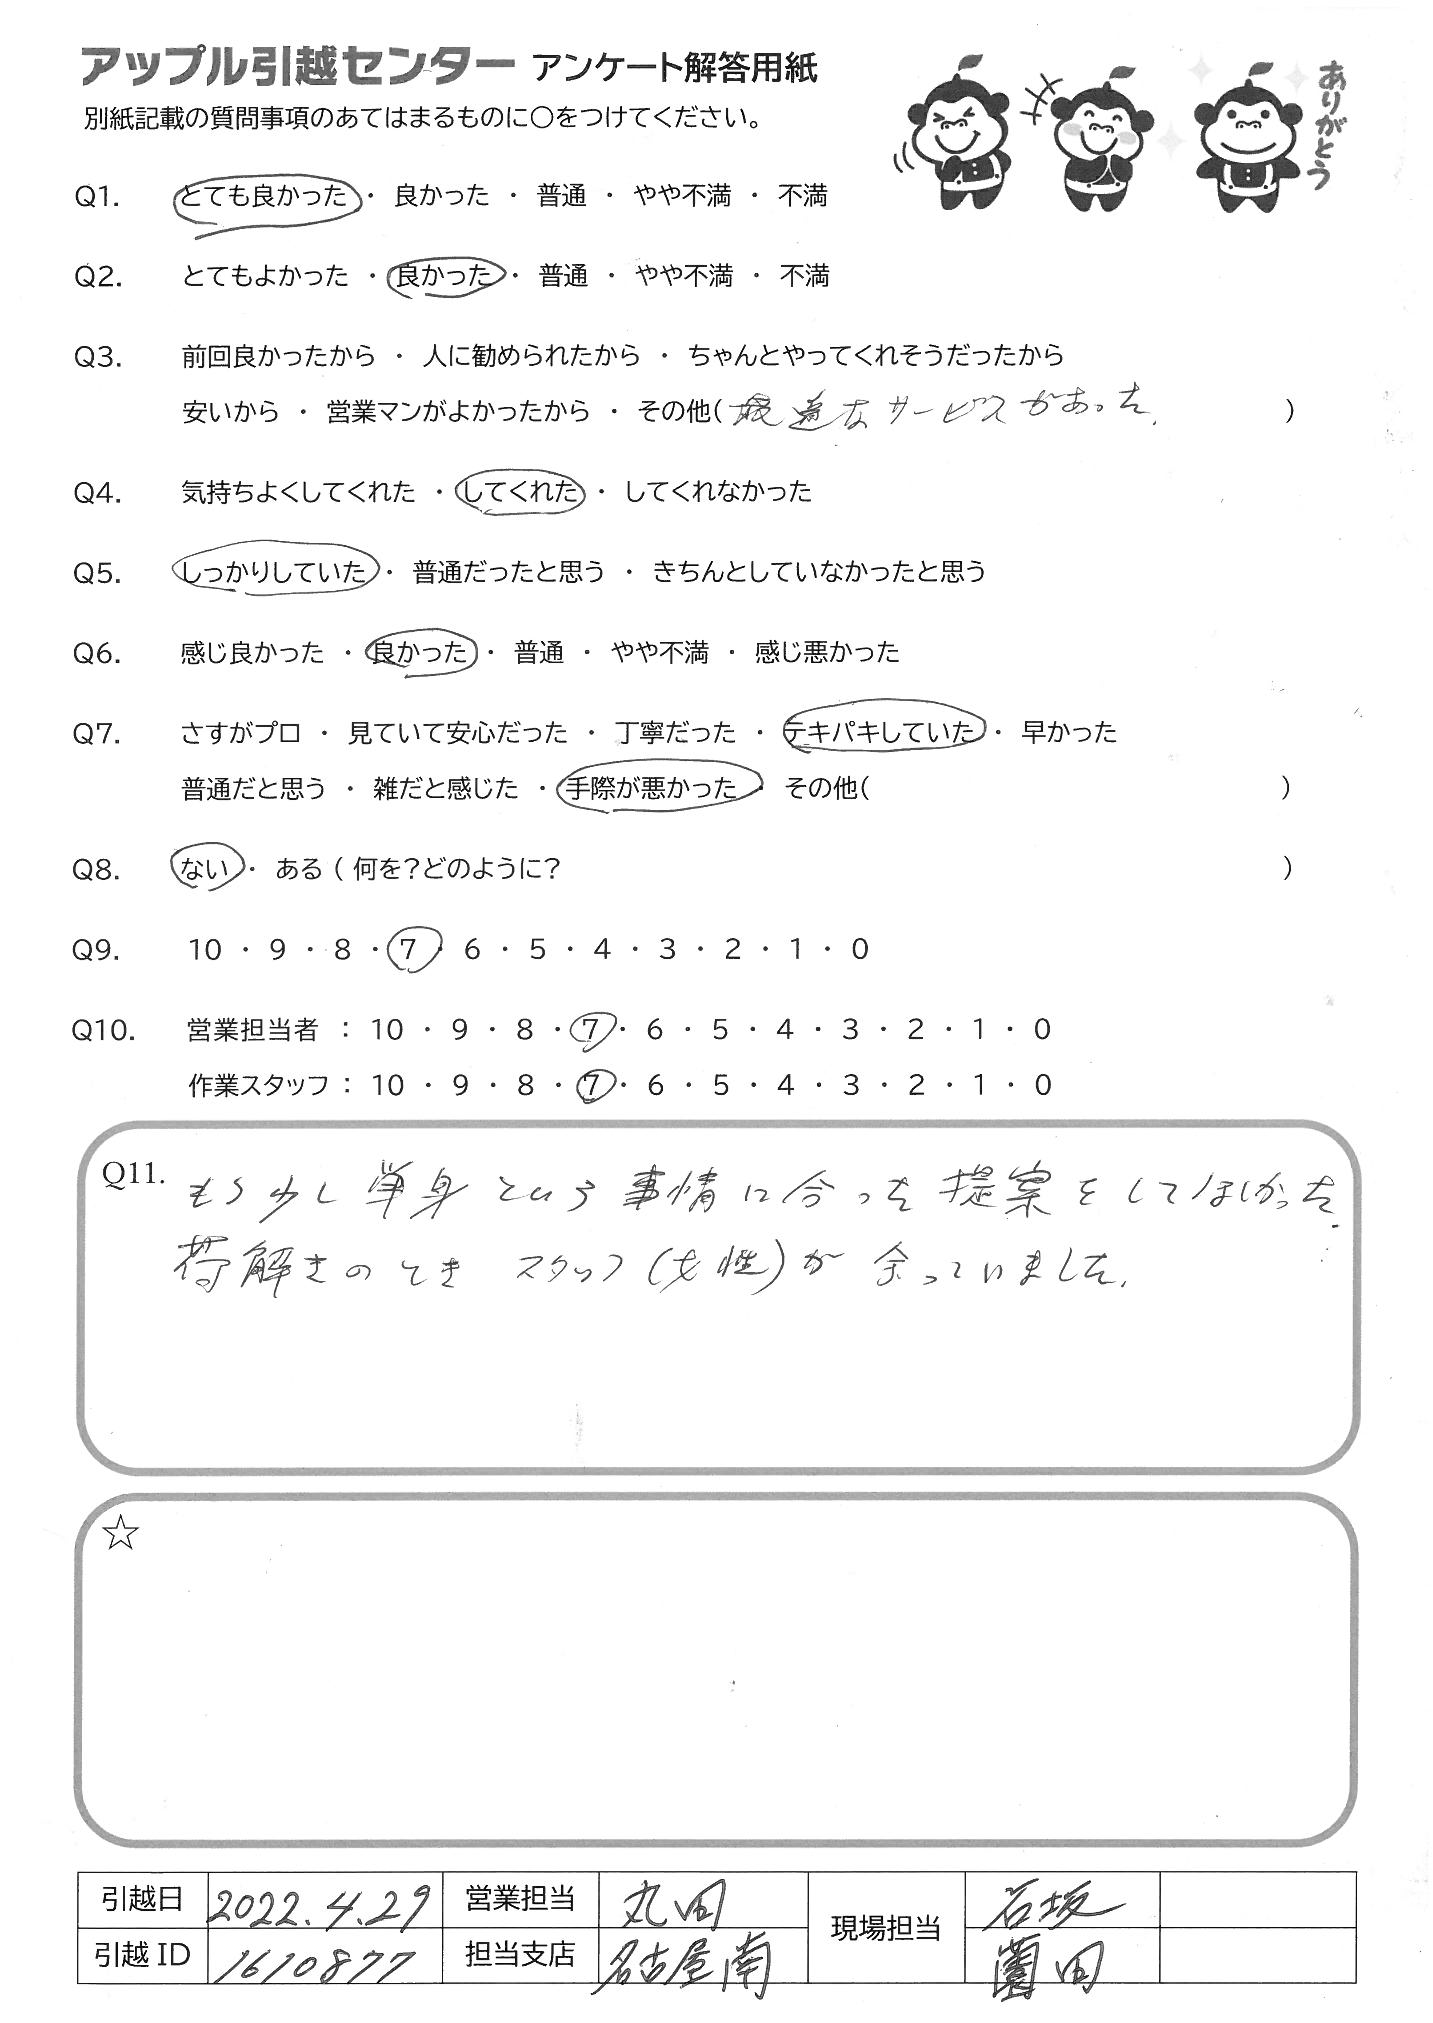 アップル引越センター アンケート解答用紙
別紙記載の質問事項のあてはまるものに○をつけてください。
ありがとう
Q1. とても良かった ・ 良かった ・ 普通 ・ やや不満 ・ 不満
Q2. とてもよかった ・ 良かった ・ 普通 ・ やや不満 ・ 不満
Q3. 前回良かったから ・ 人に勧められたから ・ ちゃんとやってくれそうだったから
安いから ・ 営業マンがよかったから ・ その他( 最適なサービスがあった. )
Q4. 気持ちよくしてくれた ・ してくれた ・ してくれなかった
Q5. しっかりしていた ・ 普通だったと思う ・ きちんとしていなかったと思う
Q6. 感じ良かった ・ 良かった ・ 普通 ・ やや不満 ・ 感じ悪かった
Q7. さすがプロ ・ 見ていて安心だった ・ 丁寧だった ・ テキパキしていた ・ 早かった
普通だと思う ・ 雑だと感じた ・ 手際が悪かった ・ その他( )
Q8. ない ・ ある ( 何を？どのように？ )
Q9. 10 ・ 9 ・ 8 ・ 7 ・ 6 ・ 5 ・ 4 ・ 3 ・ 2 ・ 1 ・ 0
Q10. 営業担当者 ： 10 ・ 9 ・ 8 ・ 7 ・ 6 ・ 5 ・ 4 ・ 3 ・ 2 ・ 1 ・ 0
作業スタッフ ： 10 ・ 9 ・ 8 ・ 7 ・ 6 ・ 5 ・ 4 ・ 3 ・ 2 ・ 1 ・ 0
Q11. もう少し単身という事情に合った提案をしてほしかった.
荷解きのとき スタッフ(女性)が 余っていました.
☆
引越日 2022.4.29 営業担当 丸田 現場担当 石坂
引越ID 1610877 担当支店 名古屋南 薗田